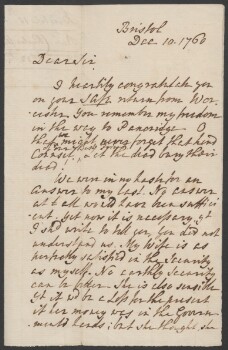 Bristol
Dec. 10. 1760
Dear Sir,
I heartily congratulate you
on your safe return from Wor-
cester. You remember my freedom
in the way to
that you might never forget that kind
Counsel, Let the dead bury their
dead!
We were in no haste for an
Answer to my last. No answer
at all would have been suffici-
ent. Yet now it is necessary yt
I shd write to tell you, You did not
understand us. My Wife is as
perfectly satisfied in the Security
as myself. No earthly Security
can be better. She is also sensible
yt it wd be a Loss for the present
if her money was in the Govern-
ment Funds: but she thought, she